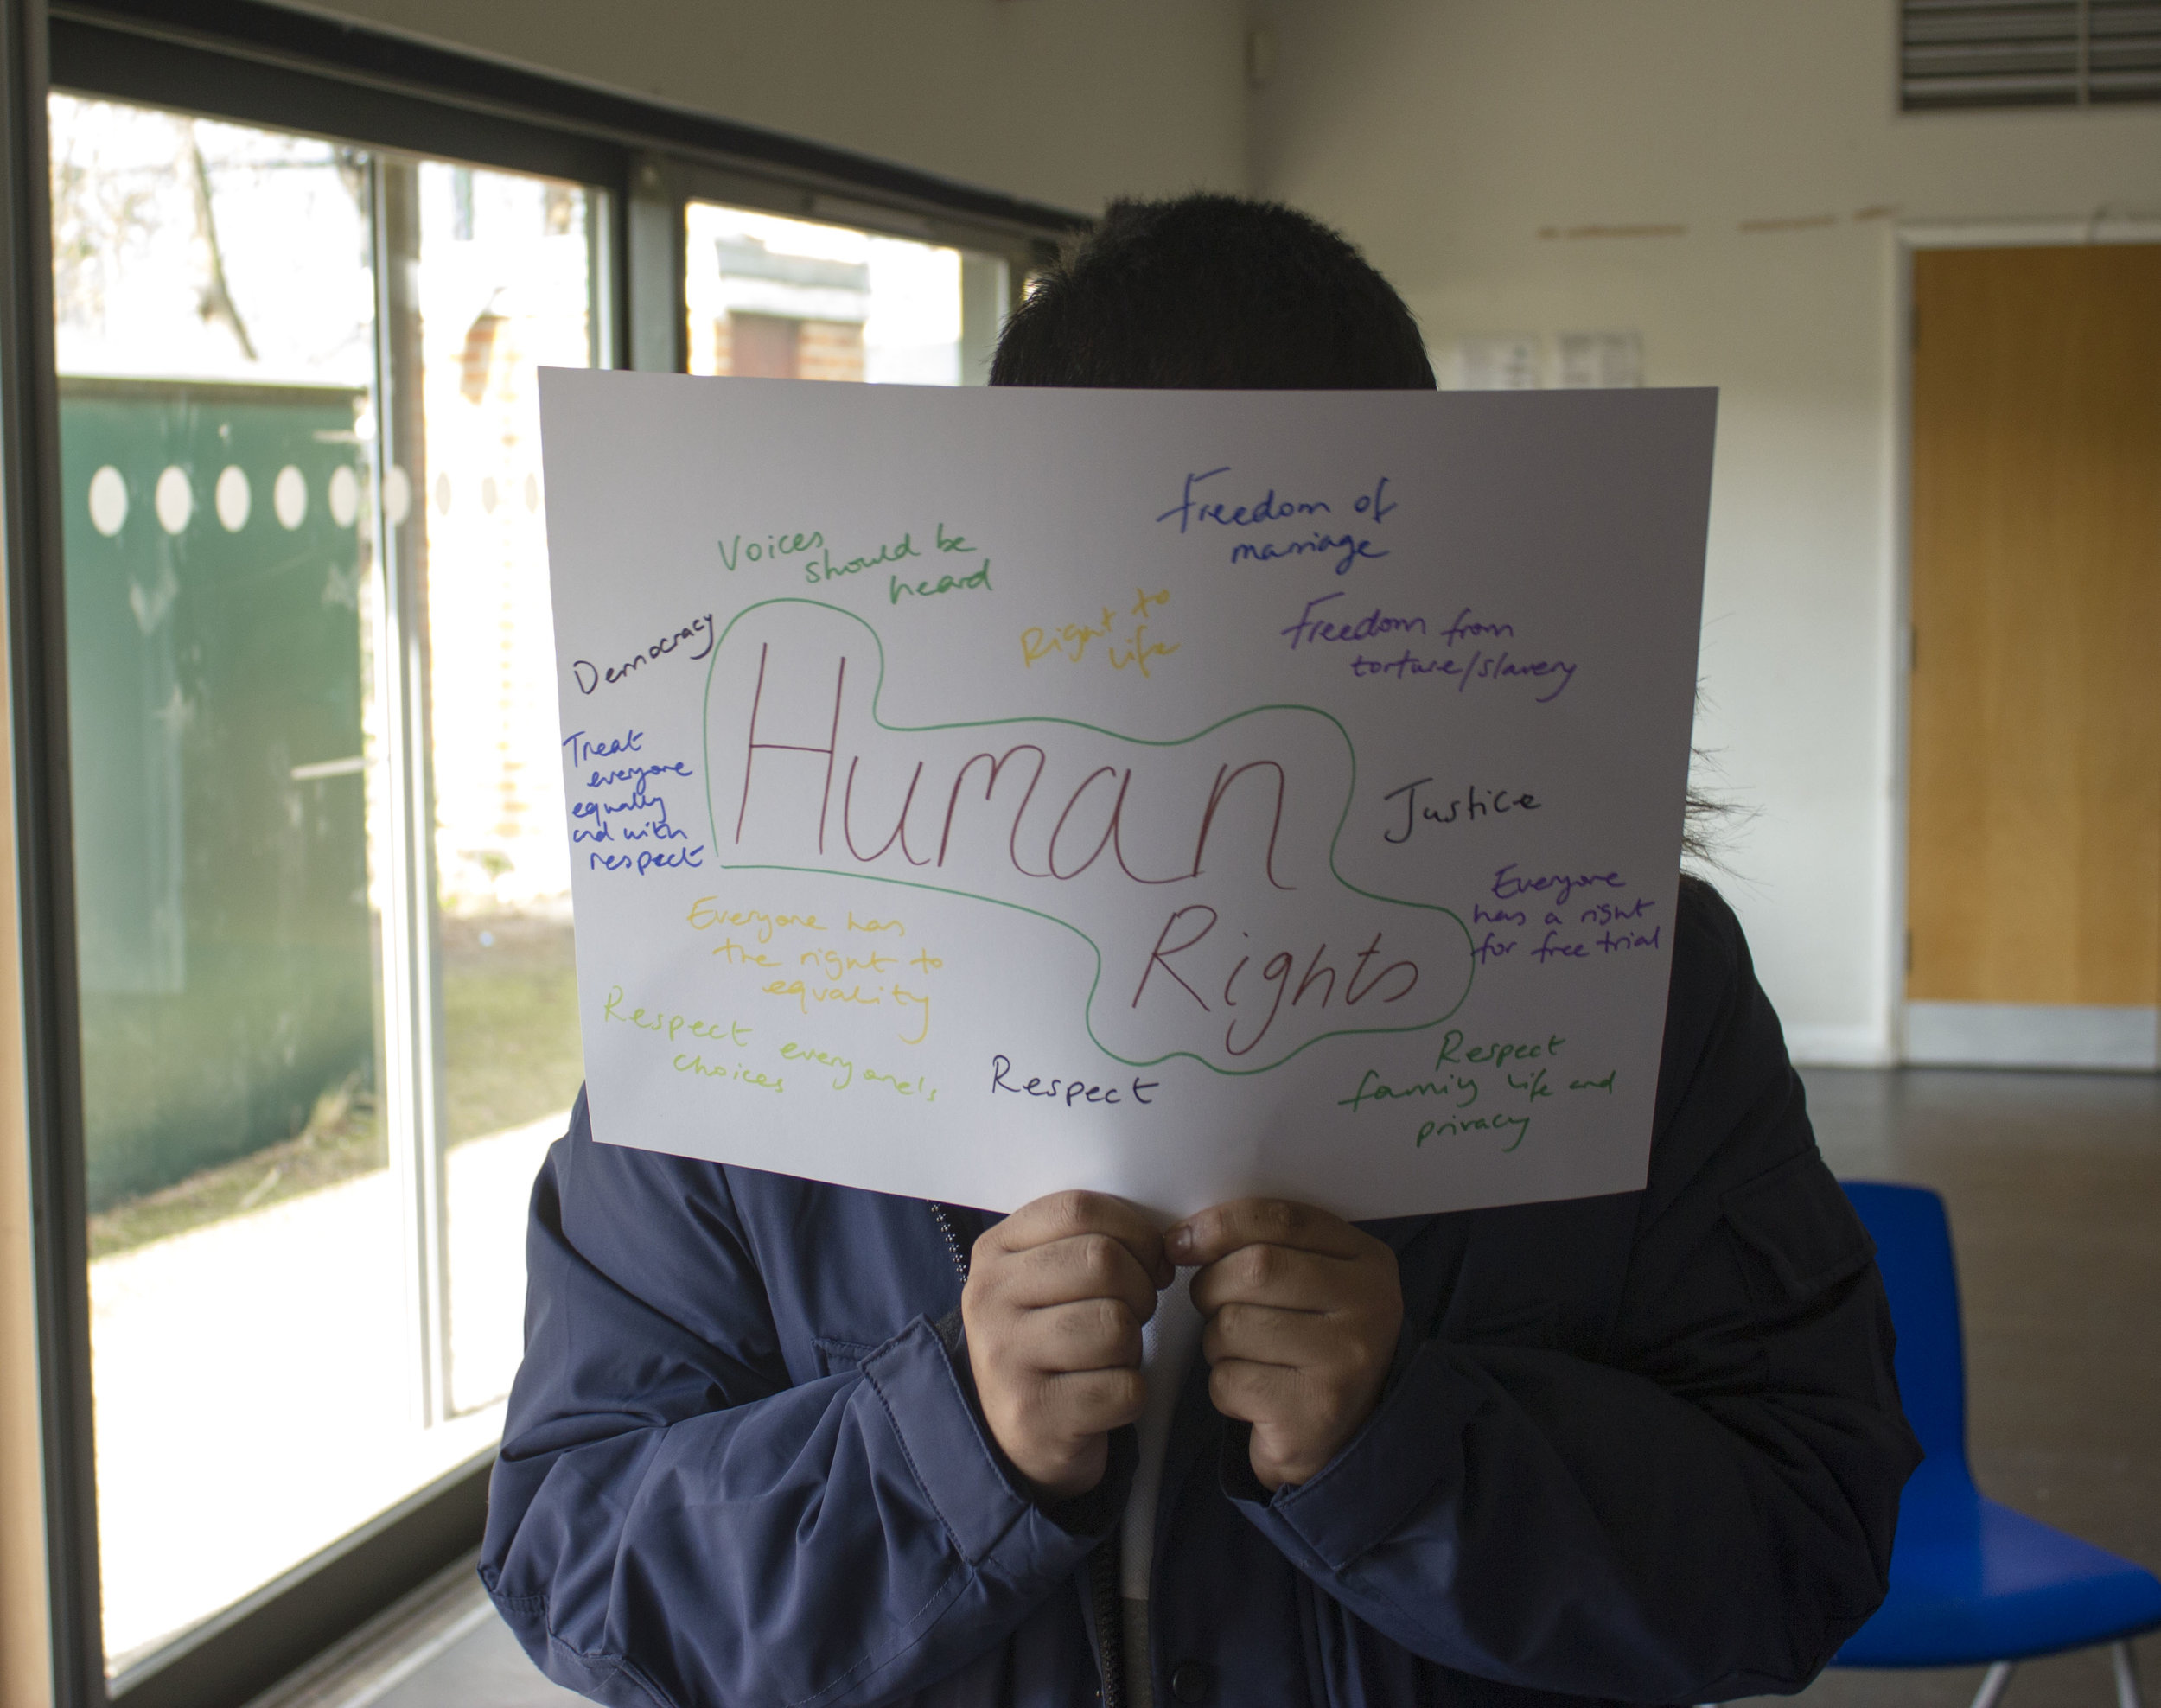 Freedom of
marriage
Voices
should be
heard
Right to
life
Freedom from
torture/slavery
Democracy
Treat
everyone
equally
and with
respect
Human
Rights
Justice
Everyone
has a right
for free trial
Everyone has
the right to
equality
Respect everyone's
choices
Respect
Respect
family life and
privacy